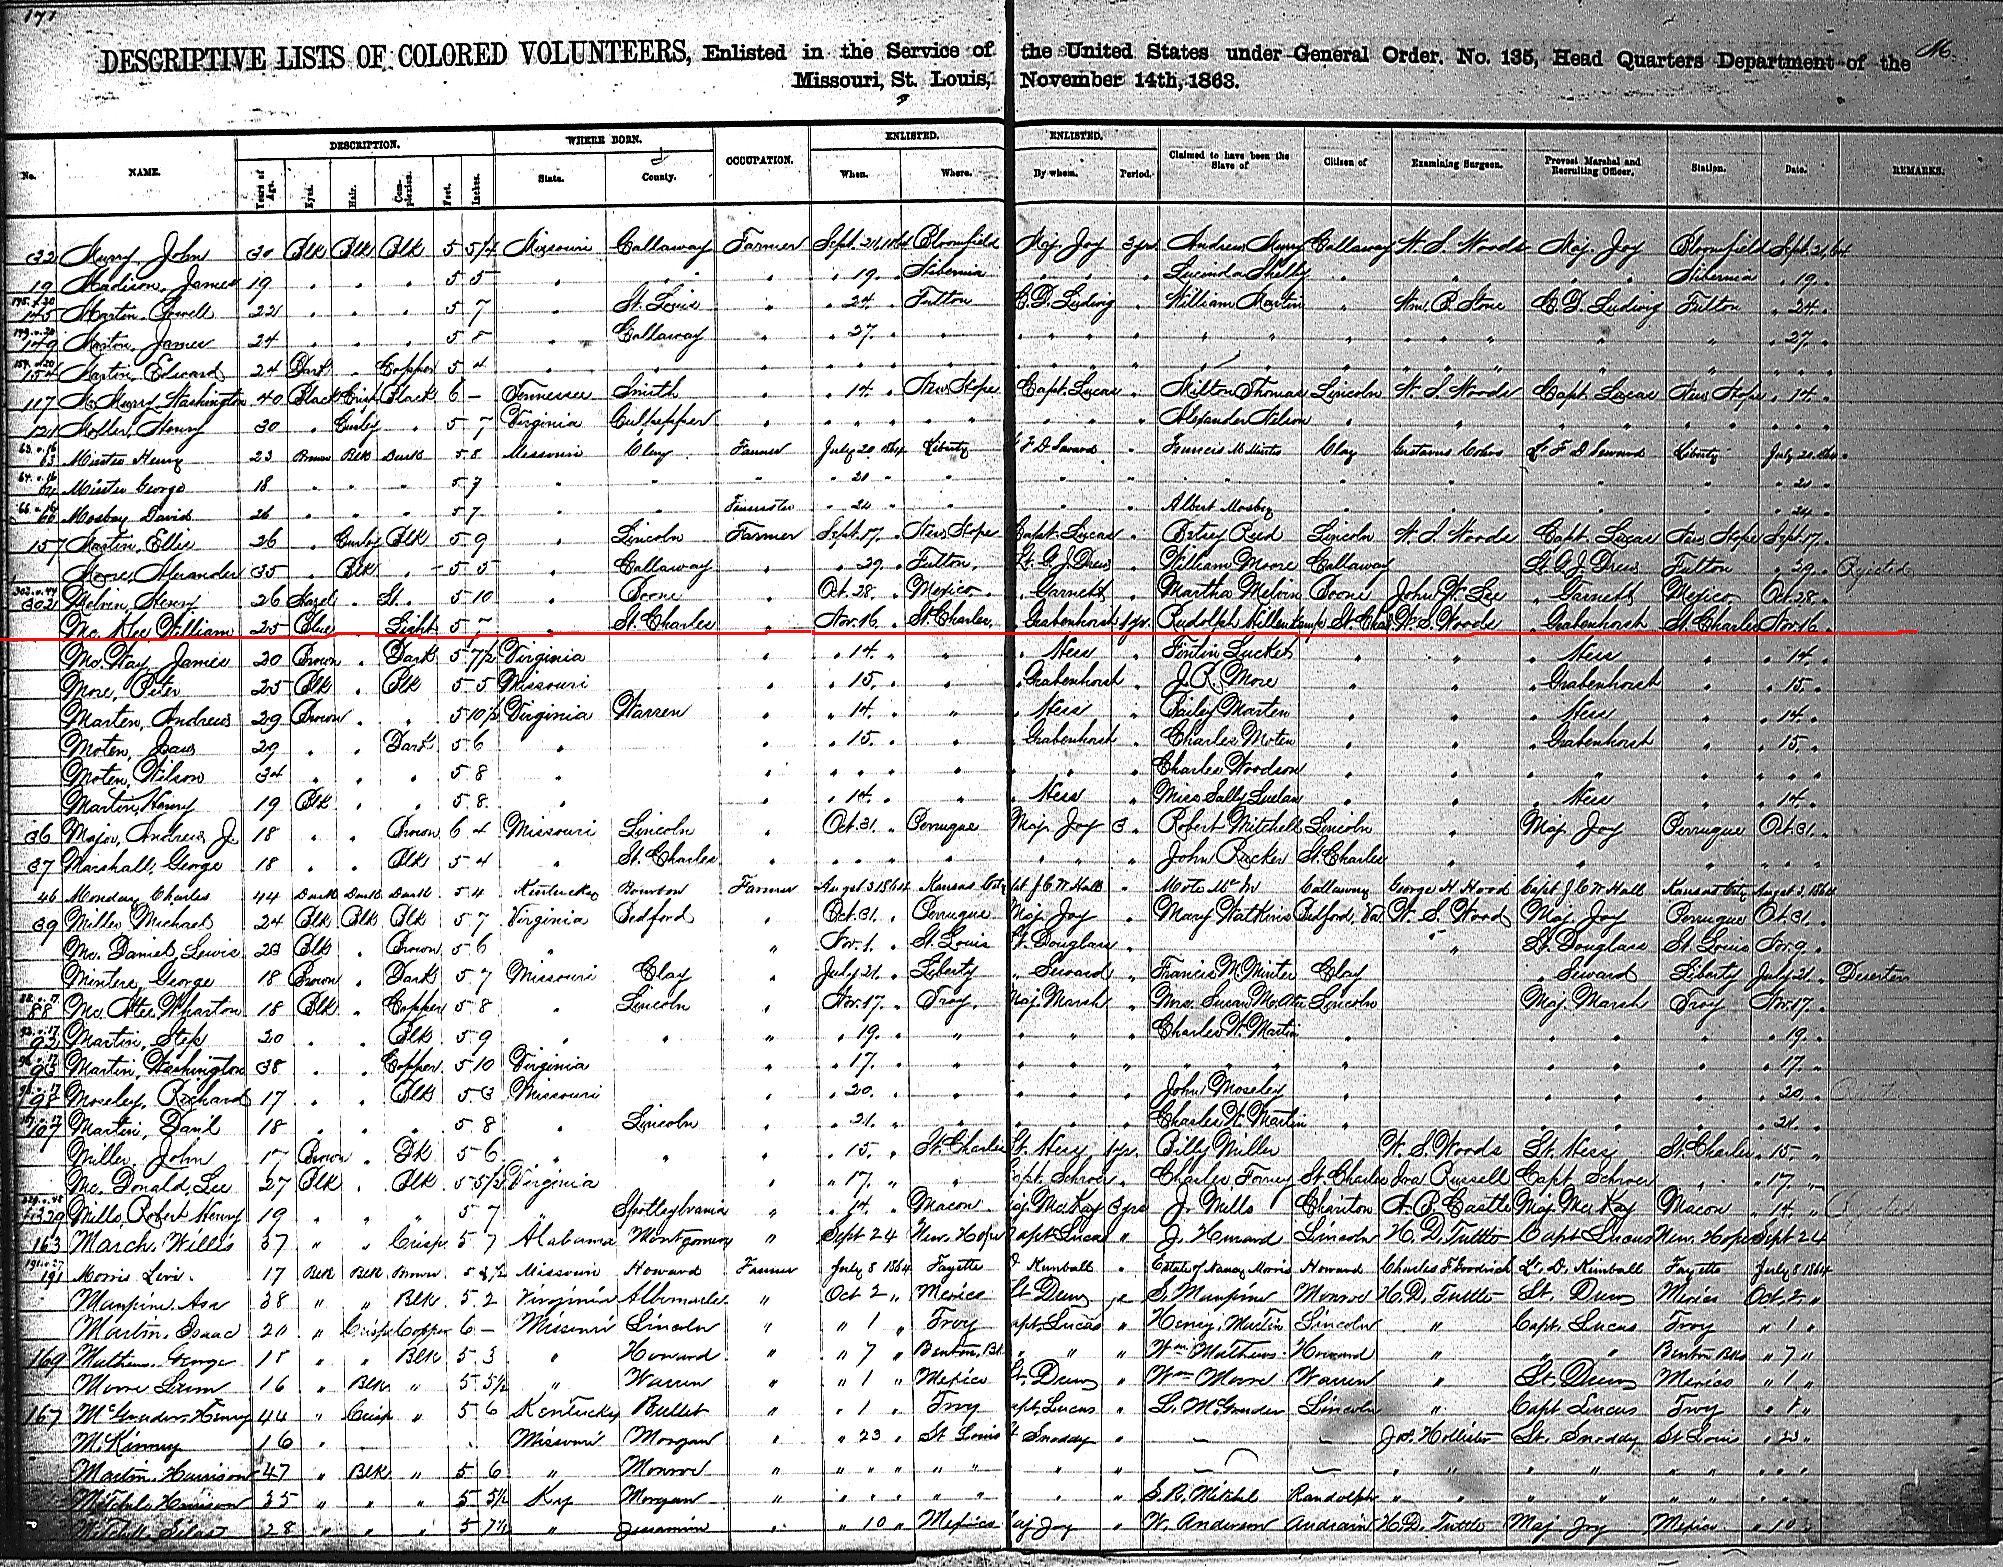 171
M.
DESCRIPTIVE LISTS OF COLORED VOLUNTEERS, Enlisted in the Service of the United States under General Order, No. 135, Head Quarters Department of the
Missouri, St. Louis, November 14th, 1863.
DESCRIPTION. WHERE BORN. ENLISTED. ENLISTED.
No. NAME. Years of Age. Eyes. Hair. Complexion. Feet. Inches. State. County. OCCUPATION. When. Where. By whom. Period. Claimed to have been the Slave of Citizen of Examining Surgeon. Provost Marshal and Recruiting Officer. Station. Date. REMARKS.
32 Murry, John 30 Blk Blk Blk 5 5½ Missouri Callaway Farmer Sept. 21, 1864 Bloomfield Maj. Joy 3 yrs Andrew Murry Callaway W. S. Woods Maj. Joy Bloomfield Sept. 21, 64
19 Madison, James 19 " " " 5 5 " " " " 19. " Hibernia " " " Lucinda Shelby " " " Hibernia " 19. "
145 Martin, Powell 22 " " " 5 7 " St. Louis " " 24. " Fulton C. D. Ludwig " William Martin " Wm. R. Stone C. D. Ludwig Fulton " 24. "
149 Marton, James 24 " " " 5 8 " Callaway " " 27. " " " " " " " " " " " " " 27. "
154 Martin, Edward 24 Dark " Copper 5 4 " " " " " " " " " " " " " " " " "
117 McMurry, Washington 40 Black Crisp Black 6 – Tennessee Smith " " 14. " New Hope Capt. Lucas " Milton Thomas Lincoln W. S. Woods Capt. Lucas New Hope " 14. "
121 Moller, Henry 30 " Curley " 5 7 Virginia Culpepper " " " " " " " " Alexander Nelson " " " " " " "
63 Minter Henry 23 Brown Blk Dark 5 8 Missouri Clay Farmer July 20 1864 Liberty Lt F D Seward " Francis M Minter Clay Gustavus Cohrs Lt F D Seward Liberty July 20 1864
64 Minter George 18 " " " 5 7 " " " 21 " " " " " " " " " 21 "
66 Mosbey David 26 " " " 5 7 " " Teamster " 24 " " " Albert Mosby " " " " " 24 "
157 Martin, Ellis 26 " Curley Blk 5 9 " Lincoln Farmer Sept. 17. " New Hope Capt. Lucas " Betsey Reed Lincoln W. S. Woods Capt. Lucas New Hope Sept. 17. "
Moore, Alexander 35 " Blk " 5 5 " Callaway " " 29. " Fulton. Lt. G. J. Drew " William Moore Callaway Lt. G. J. Drew Fulton " 29. " Rejected
302 Melvin, Henry 26 Hazel " Lt. " 5 10 " Boone " Oct. 28. " Mexico " Garnett " Martha Melvin Boone John W. Lee " Garnett Mexico Oct. 28. "
Mc. Klee William 25 Blue " Light 5 7 " St. Charles " Nov. 16. " St. Charles. " Grabenhorst 1 yr. Rudolph Willenkamp St. Chas W. S. Woods " Grabenhorst St. Charles Nov. 16. "
Mc. Kay, James 20 Brown " Dark 5 7½ Virginia " " 14. " " " Hess " " " " Hess " " 14. "
More, Peter 25 Blk " Blk 5 5 Missouri " " 15. " " Grabenhorst " J. R. More " " " Grabenhorst " " 15. "
Marten, Andrew 29 Brown " " 5 10½ Virginia Warren " " 14. " " " Hess " Bailey Marten " " " Hess " " 14. "
Moten, 29 " " Dark 5 6 " " " 15. " " Grabenhorst " Charles Moten " " " Grabenhorst " " 15. "
Moten, Wilson 34 " " " 5 8 " " " " " " " " Charles Woodson " " " " " " "
Martin, Henry 19 Blk " " 5 8 " " " 14. " " " Hess " Miss Sally " " " Hess " " 14. "
36 Major, Andrew J. 18 " " Brown 6 4 Missouri Lincoln " Oct. 31. " Perruque Maj. Joy 3 " Robert Mitchell Lincoln " Maj. Joy Perruque Oct. 31. "
37 Marshall, George 18 " " Blk 5 4 " St. Charles " " " " " " " " John Ricker St. Charles " " " " " "
46 Monday Charles 44 Dark Dark Dark 5 4 Kentucky Bourbon Farmer August 3 1864 Kansas City Capt J. C. W. Hall " Callaway George H. Hood Capt J. C. W. Hall Kansas City August 3. 1864
39 Miller Michael 24 Blk Blk Blk 5 7 Virginia Bedford " Oct. 31. " Perruque Maj. Joy " Mary Watkins Bedford, Va W. S. Wood Maj. Joy Perruque Oct. 31. "
Mc. Daniel, Lewis 23 Blk " Brown 5 6 " " Nov. 1. " St. Louis Lt. Douglass " " Lt. Douglass St. Louis Nov. 9. "
Minters, George 18 Brown " Dark 5 7 Missouri Clay " July 21. " Liberty " Seward " Francis M. Minter Clay " Seward Liberty July 21. " Deserter
88 Mc. Atee Wharton 18 Blk " Copper 5 8 " Lincoln " Nov. 17. " Troy. Maj. Marsh " Mrs. Susan McAtee Lincoln Maj. Marsh Troy Nov. 17. "
92 Martin, Step 20 " " Blk 5 9 " " " " 19. " " " " Charles W. Martin " " " " 19. "
93 Martin, Washington 38 " " Copper 5 10 Virginia " " 17. " " " " " " " " " " " 17. "
98 Moseley, Richard 17 " " Blk 5 3 Missouri " " 20. " " " " John Moseley " " " " 20. "
107 Martin, Danl 18 " " " 5 8 " Lincoln " " 21. " " " " Charles W. Martin " " " " 21. "
Miller, John 17 Brown " Dk 5 6 " " " " 15. " St. Charles Lt. Hess 1 yr. Billy Miller W. S. Woods Lt. Hess St. Charles " 15. "
Mc. Donald, Lee 27 Blk " Blk 5 5½ Virginia " " 17. " " Capt. Schroer " Charles Forney St. Charles Ira Russell Capt. Schroer " " 17. "
Mills, Robert Henry 19 " " " 5 7 " Spottsylvania " " 14. " Macon Maj. McKay 3 yrs J. Mills Chariton A. P. Castle Maj. McKay Macon " 14. " Rejected
163 March, Willis 37 " " Crisp 5 7 Alabama Montgomery " Sept 24 New Hope Capt Lucas " J. Howard Lincoln H. D. Tuttle Capt Lucas New Hope Sept 24
191 Morris Levi. 17 Blk Blk Brown 5 4½ Missouri Howard Farmer July 8 1864 Fayette D Kimball " Estate of Nancy Morris Howard Charles F. Goodrich Lt. D. Kimball Fayette July 8 1864
Maupine. Asa 38 " " Blk 5 2 Virginia Albemarle " Oct 2 " Mexico Lt Drew " S. Maupine Monroe H. D. Tuttle Lt. Drew Mexico Oct. 2. "
Martin. Isaac 20 " Crisp Copper 6 – Missouri Lincoln " " 1 " Troy Capt. Lucas " Henry Martin Lincoln " Capt. Lucas Troy " 1 "
169 Mathews. George 18 " " Blk 5 3 " Howard " " 7 " Benton. Bk " " " Wm. Matthews. Howard " " " Benton Bks " 7 "
Moore 16 " Blk " 5 5½ " Warren " " 1 " Mexico Lt. Drew " Wm Moore Warren " Lt. Drew Mexico " 1 "
167 McGruder. Henry 44 " Crisp " 5 6 Kentucky Bullet " " 1 " Troy Capt. Lucas " L. McGruder Lincoln " Capt. Lucas Troy " 1 "
McKinney 16 " Missouri Morgan " " 23 " St Louis Lt Snoddy " – – Jos. Hollister Lt. Snoddy St Louis " 23 "
Martin. Harrison 47 " Blk " 5 6 " Monroe " " " " " " " " – – " " " " " " "
Mitchel. Harrison 35 " " " 5 5½ Ky Morgan " " " " " " " " S. B. Mitchel Randolph " " " " " " " "
Mitchell Silas 28 " " " 5 7½ " Jessamine " " 10 " Mexico Maj Joy " W. Anderson Audrain H. D. Tuttle Maj Joy Mexico " 10